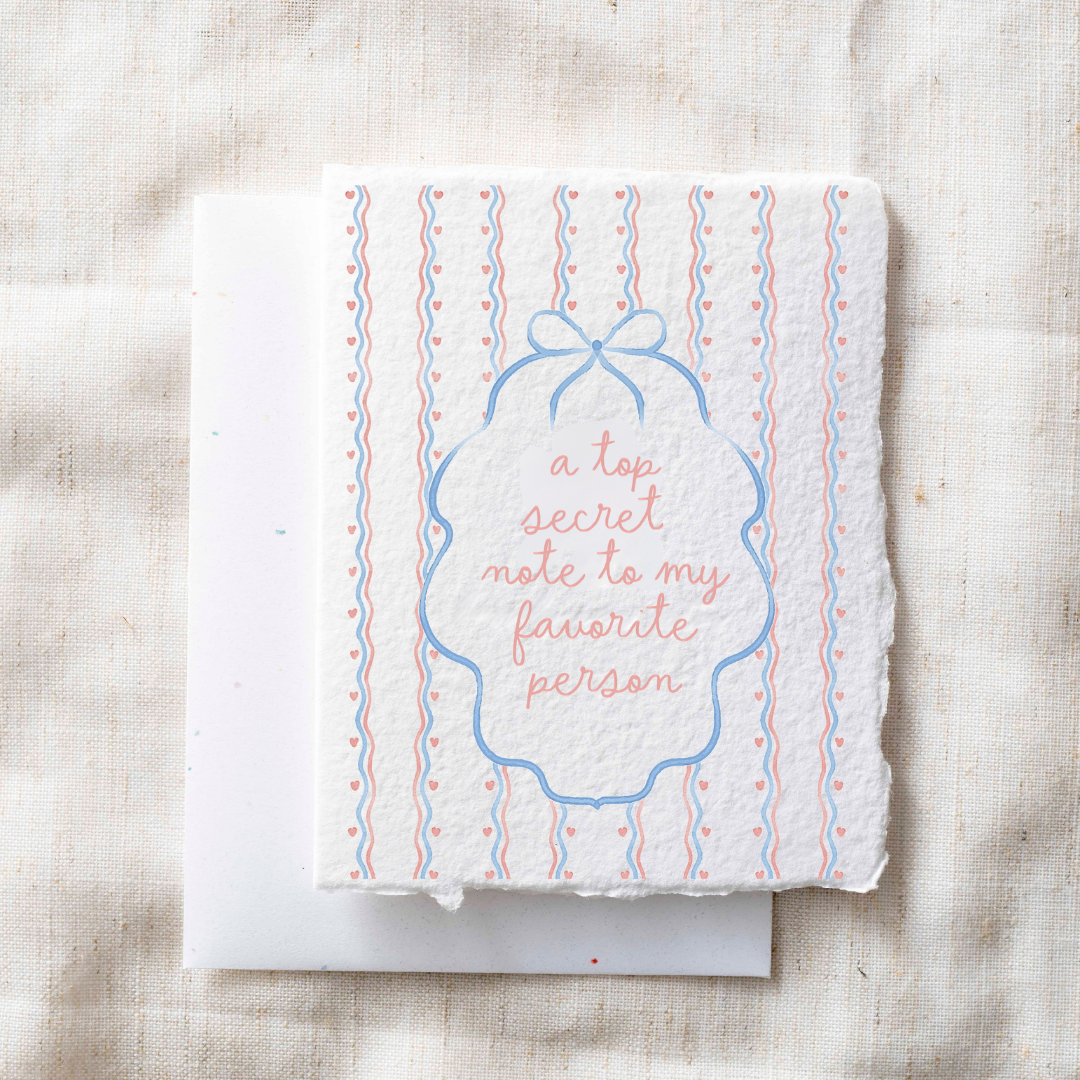 a top
secret
note to my
favorite
person